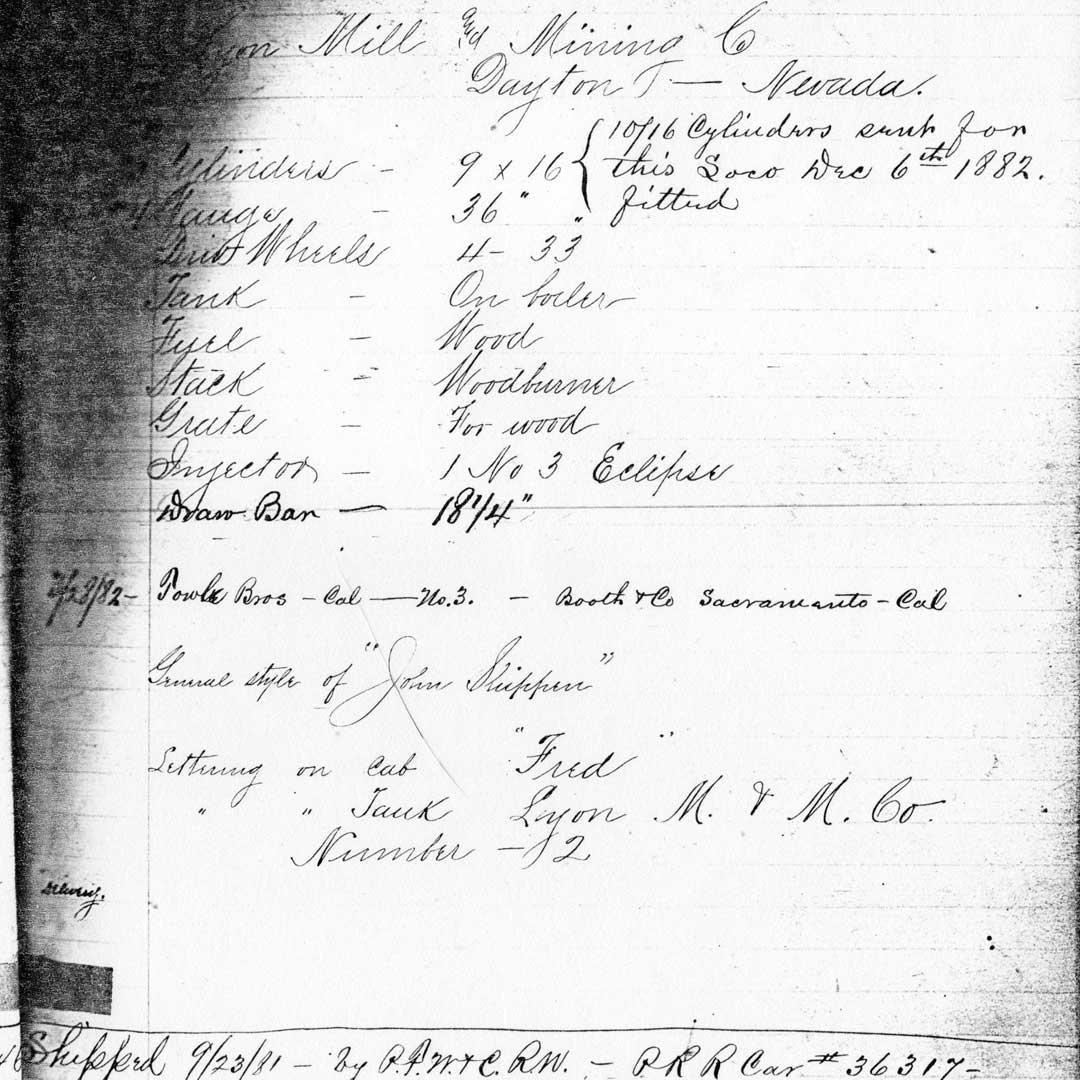 Lyon Mill and Mining C
Dayton T — Nevada.
Cylinders - 9 x 16 { 10/16 Cylinders sent for
this Loco Dec 6th 1882.
fitted
Gauge - 36"
Wheels 4 - 33"
Tank - On boiler
Fuel - Wood
Stack - Woodburner
Grate - For wood
Injector - 1 No 3 Eclipse
Draw Bar — 18 1/4"
Towle Bros - Cal — No. 3. - Booth & Co Sacramanto - Cal
General style of "John Shippen"
Lettering on cab "Fred"
" " Tank Lyon M. & M. Co.
Number - 2
Delivery.
Shipped 9/23/81 - by P.F.W. & C. R.W. - P R R Car # 36317 -